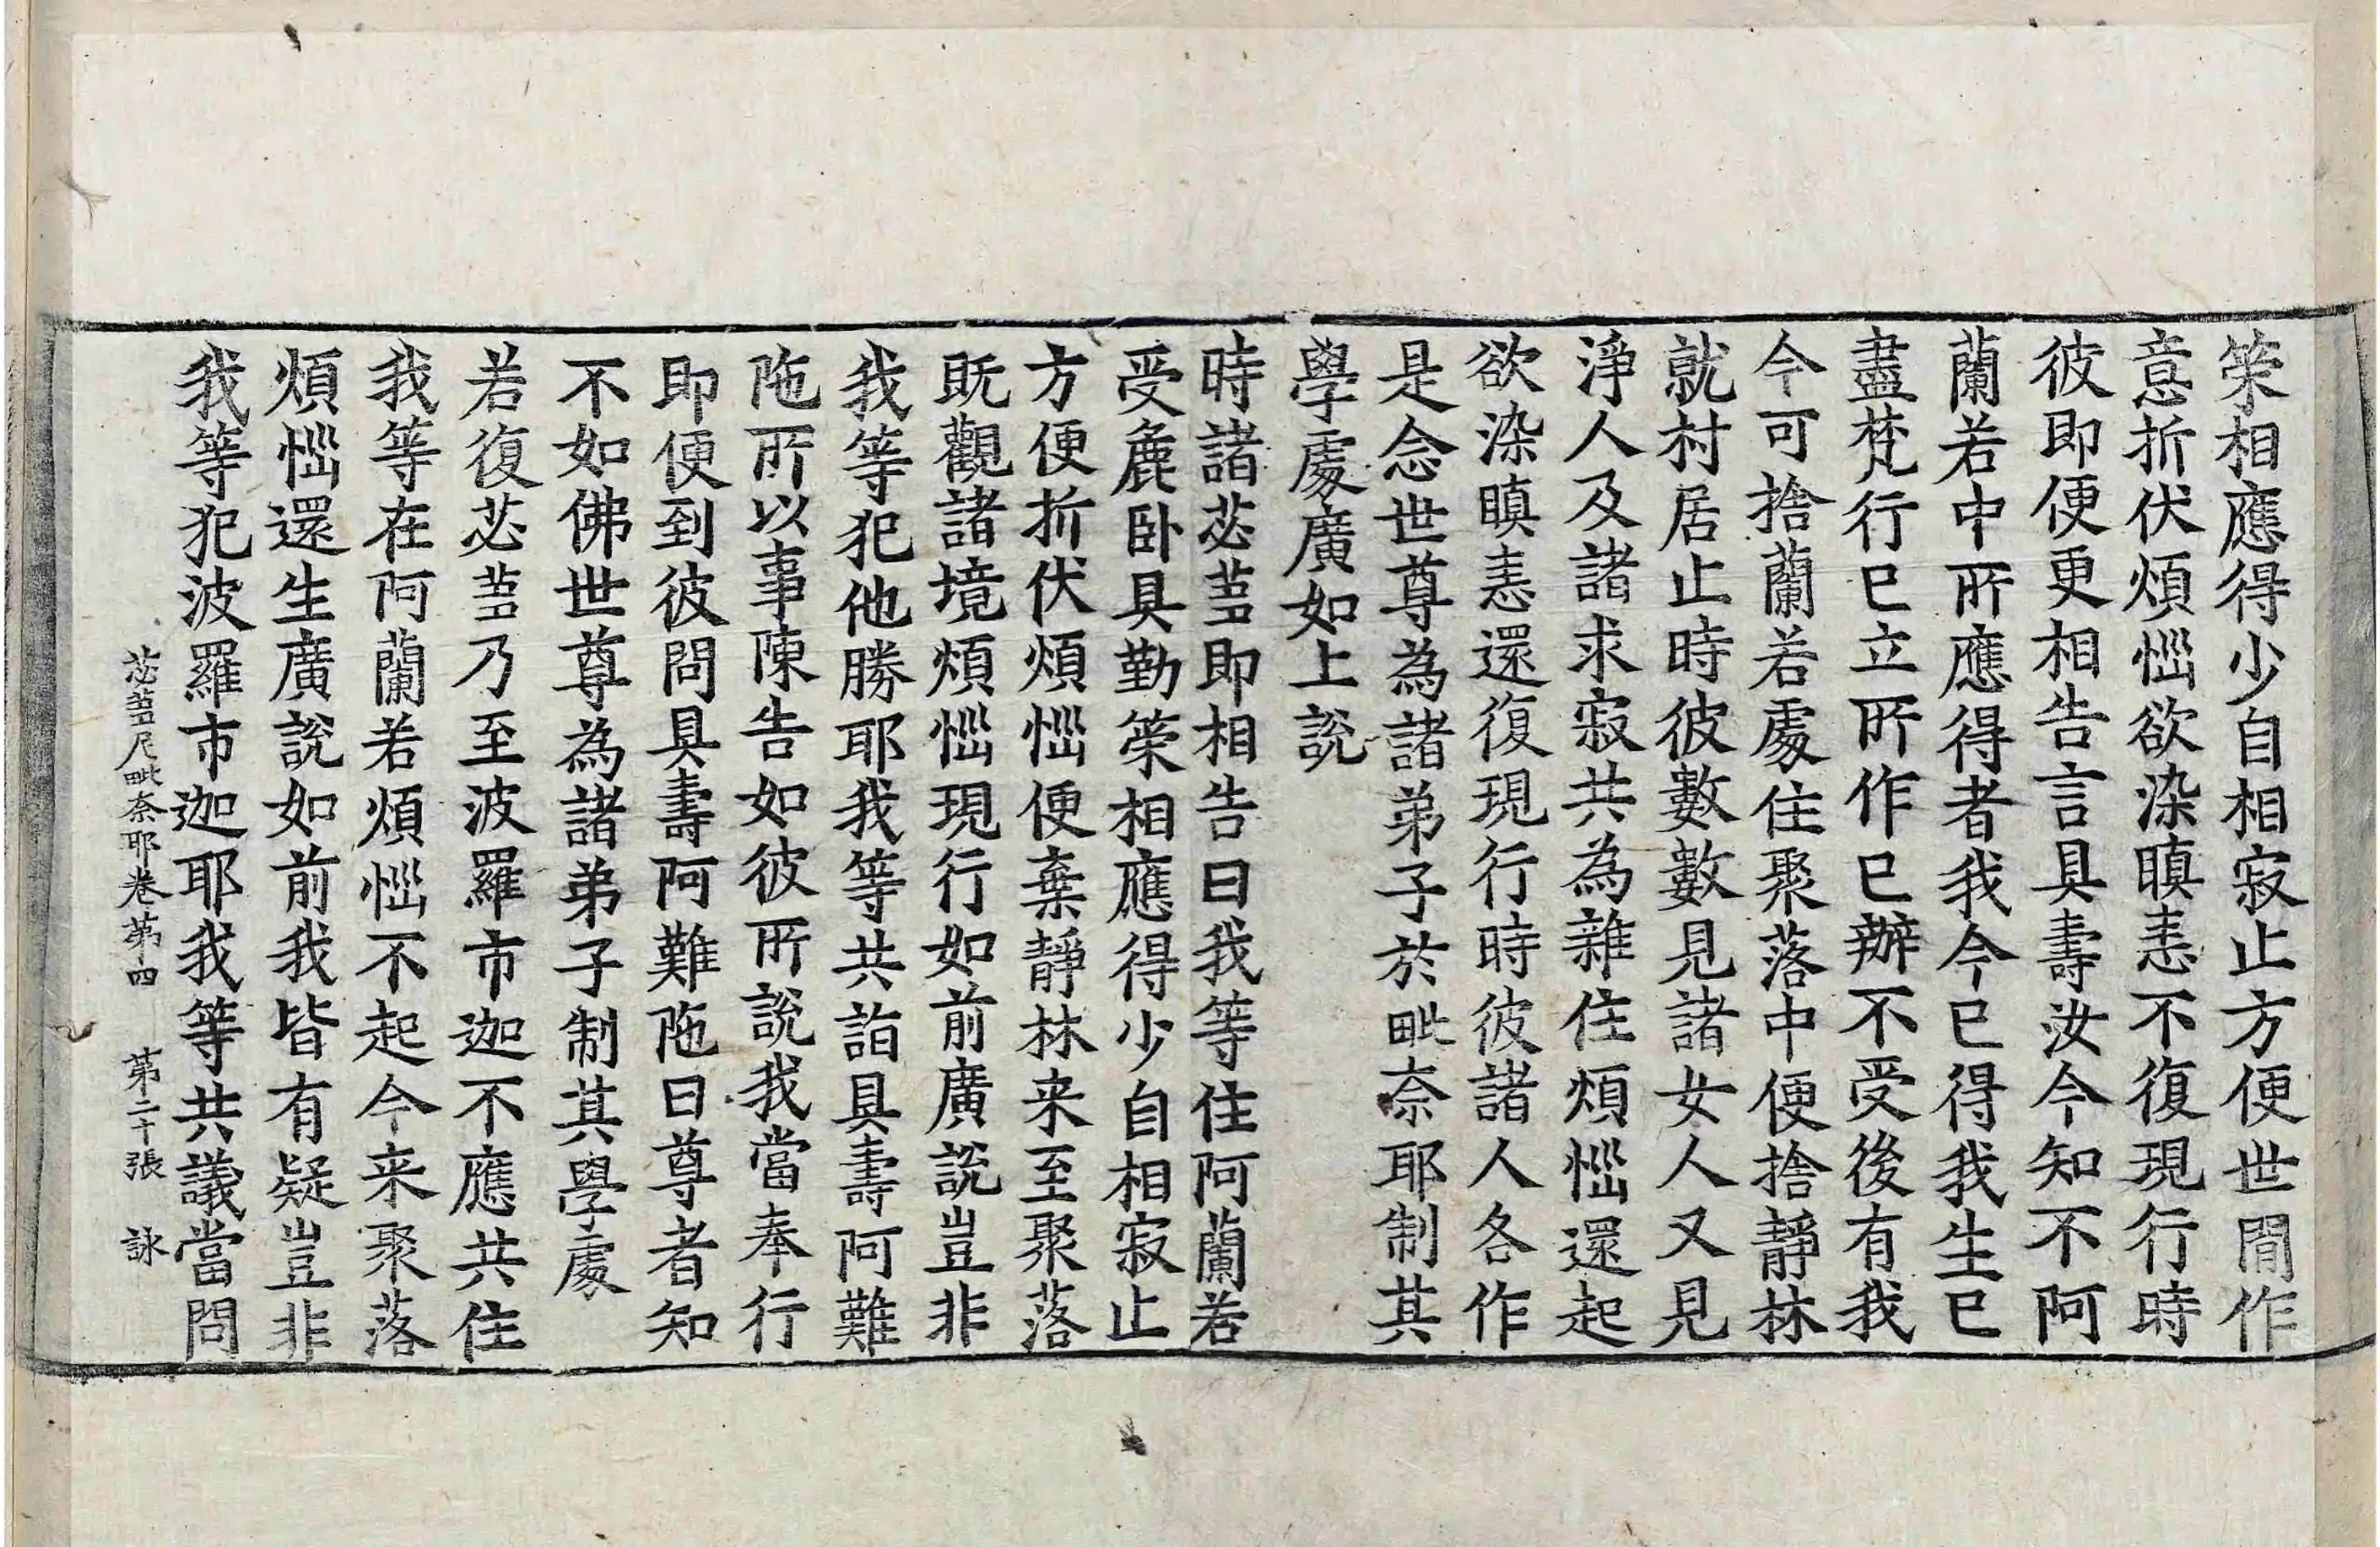 䇿相應得少自相寂止方便世間作
意折伏煩惱欲染瞋恚不復現行時
彼即便更相告言具壽汝今知不阿
蘭若中所應得者我今已得我生已
盡梵行已立所作已辦不受後有我
今可捨蘭若處住聚落中便捨靜林
就村居止時彼數數見諸女人又見
淨人及諸求寂共為雜住煩惱還起
欲染瞋恚還復現行時彼諸人各作
是念世尊為諸弟子於毗奈耶制其
學處廣如上說
時諸苾芻即相告曰我等住阿蘭若
受麁卧具勤䇿相應得少自相寂止
方便折伏煩惱便棄靜林来至聚落
既觀諸境煩惱現行如前廣說豈非
我等犯他勝耶我等共詣具壽阿難
陁所以事陳告如彼所說我當奉行
即便到彼問具壽阿難陁曰尊者知
不如佛世尊為諸弟子制其學處
若復苾芻乃至波羅市迦不應共住
我等在阿蘭若煩惱不起今来聚落
煩惱還生廣說如前我皆有疑豈非
我等犯波羅市迦耶我等共議當問
苾芻尼毗奈耶卷第四 第二十張 詠